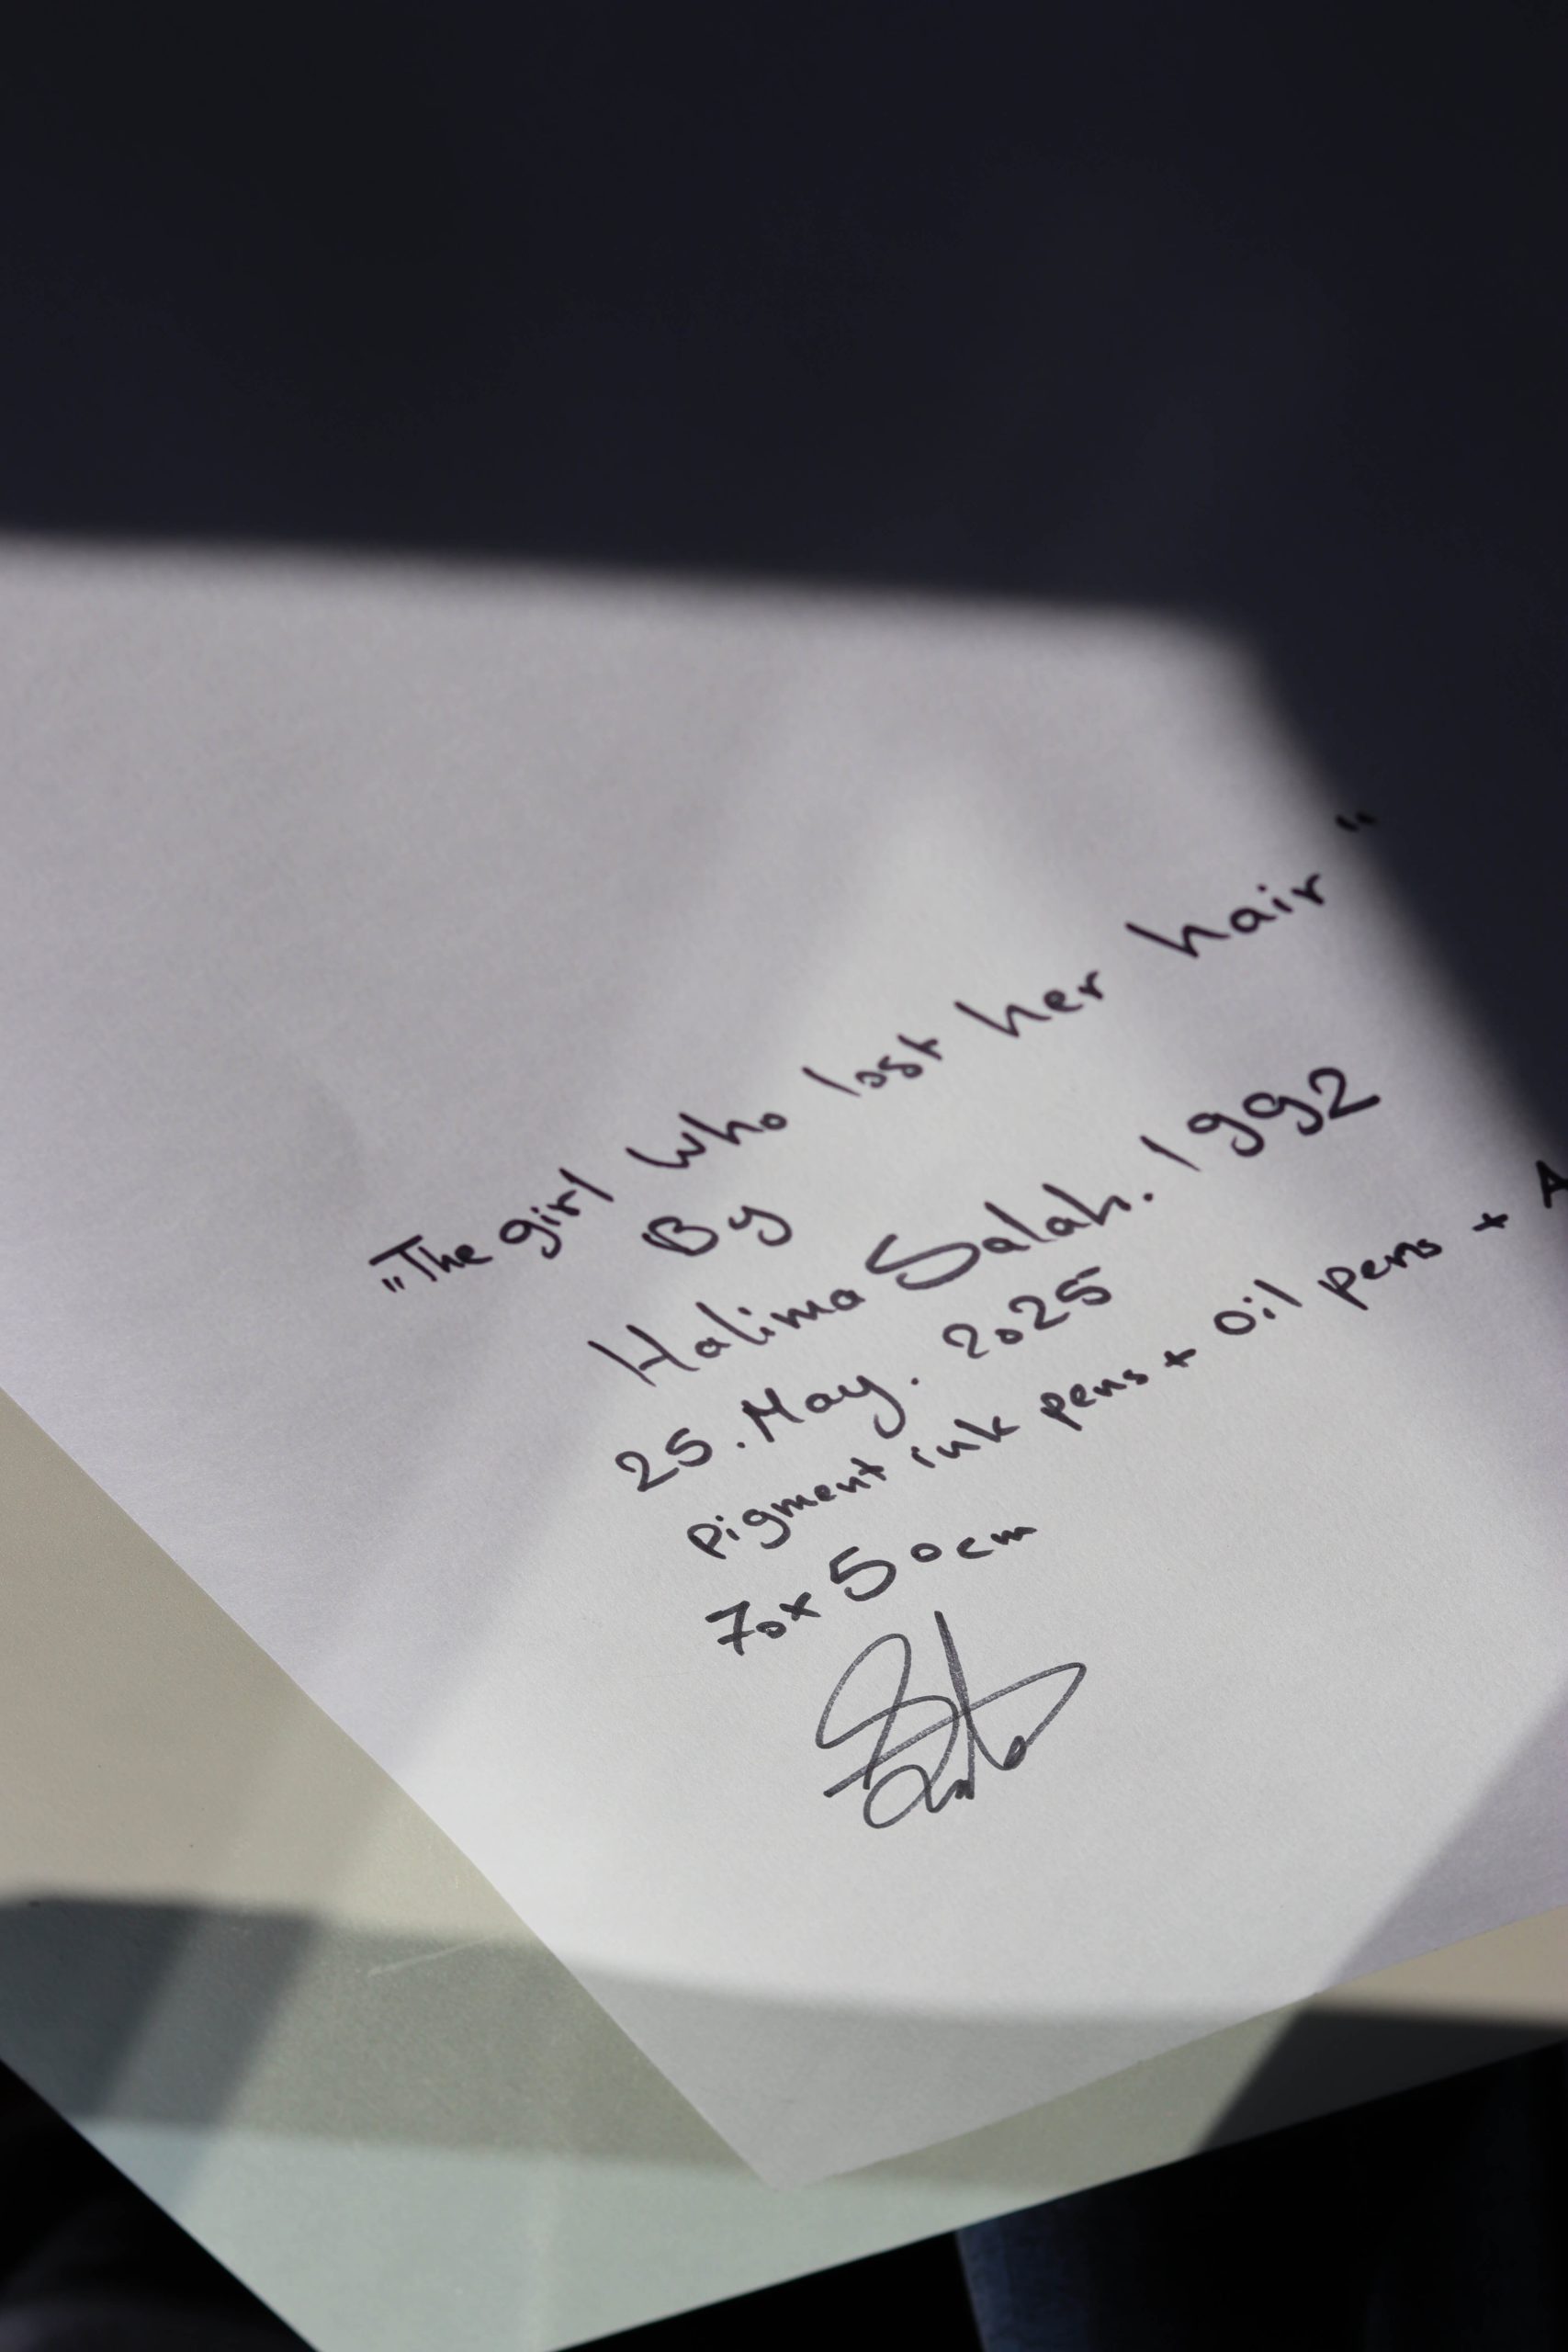 „The girl who lost her hair"
By
Halima Salah. 1992
25. May. 2025
Pigment ink pens + Oil pens + A
70x50cm